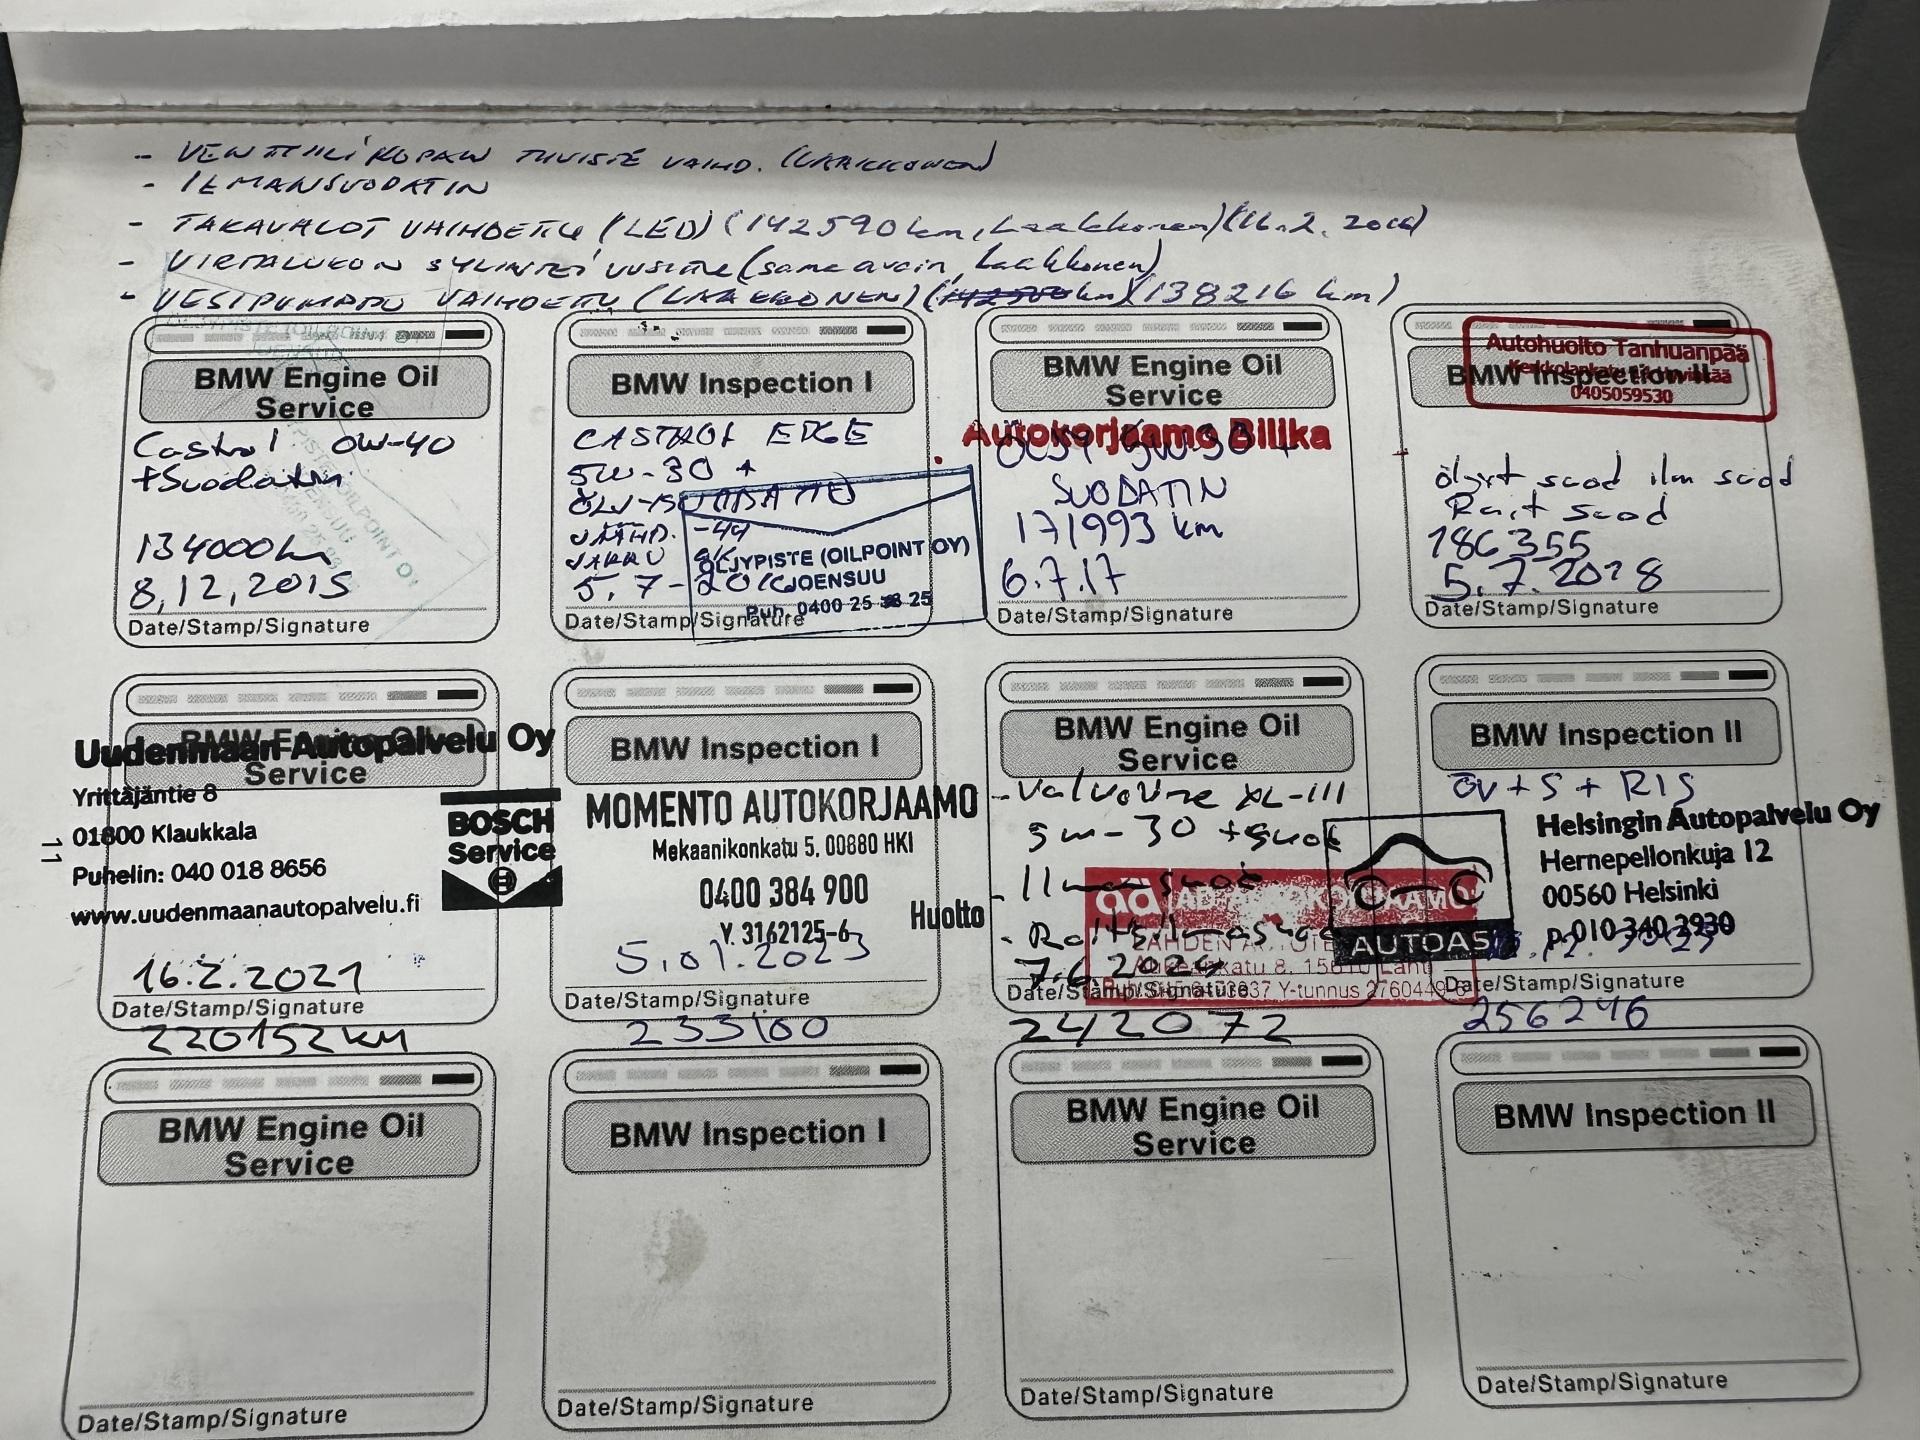 - VENTTIILIKOPAN TIIVISTE VAIHD. (LAAKKONEN)
- ILMANSUODATIN
- TAKAVALOT VAIHDETTU (LED) (142590 km, Laakkonen) (16.2.2016)
- VIRTALUKON SYLINTERI UUSITTU (sama avain, Laakkonen)
- VESIPUMPPU VAIHDETTU (LAAKKONEN) (138216 km)
BMW Engine Oil
Service
Castrol 0W-40
+Suodatin
134000km
8.12.2015
Date/Stamp/Signature
BMW Inspection I
CASTROL EDGE
5W-30 +
ÖLJYNSUODATIN
5.7-2016
ÖLJYPISTE (OILPOINT OY)
JOENSUU
Puh. 0400 25 38 25
Date/Stamp/Signature
BMW Engine Oil
Service
Autokorjaamo Bilika
5W30 +
SUODATIN
171993 km
6.7.17
Date/Stamp/Signature
BMW Inspection II
Autohuolto Tanhuanpää
0405059530
öljyt suod ilm suod
Rait suod
186355
5.7.2018
Date/Stamp/Signature
BMW Engine Oil
Service
Uudenmaan Autopalvelu Oy
Yrittäjäntie 8
01800 Klaukkala
Puhelin: 040 018 8656
www.uudenmaanautopalvelu.fi
BOSCH
Service
16.2.2021
Date/Stamp/Signature
220152km
11
BMW Inspection I
MOMENTO AUTOKORJAAMO
Mekaanikonkatu 5, 00880 HKI
0400 384 900
Y. 3162125-6
Huolto
5.01.2023
Date/Stamp/Signature
233160
BMW Engine Oil
Service
- Valvoline XL-III
5w-30 +suod
- Ilmansuod
7.6.2024
Date/Stamp/Signature
242072
BMW Inspection II
ÖV+S+RIS
Helsingin Autopalvelu Oy
Hernepellonkuja 12
00560 Helsinki
p.010 340 3930
AUTOASI
Date/Stamp/Signature
256246
BMW Engine Oil
Service
Date/Stamp/Signature
BMW Inspection I
Date/Stamp/Signature
BMW Engine Oil
Service
Date/Stamp/Signature
BMW Inspection II
Date/Stamp/Signature